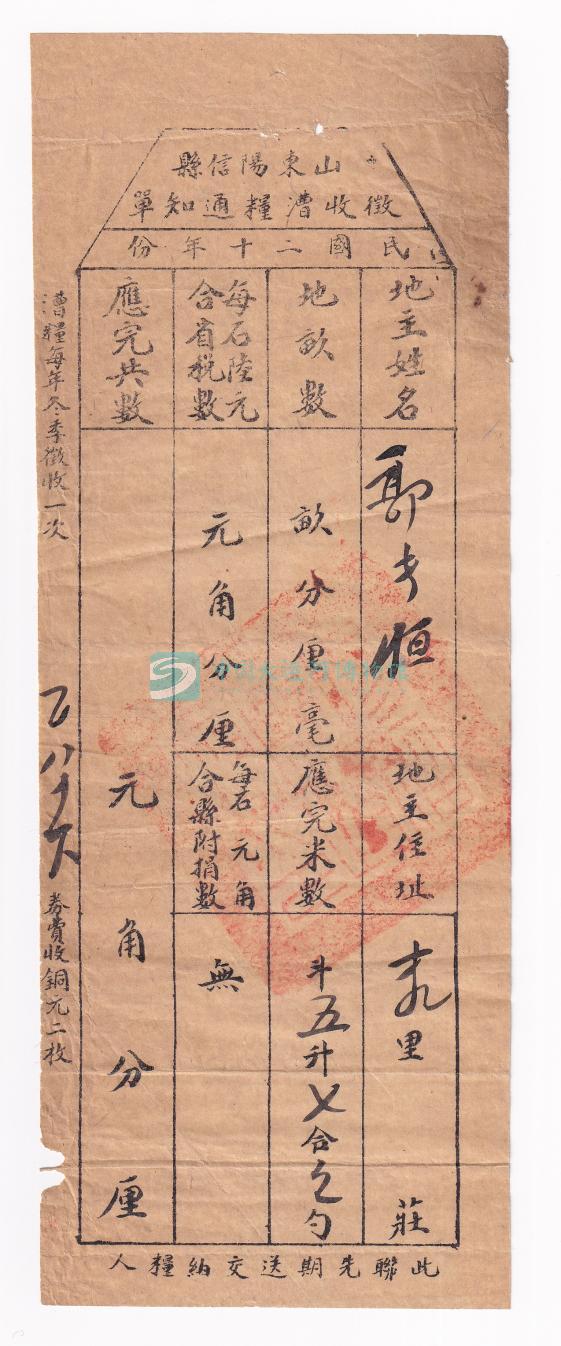 山東陽信縣
徵收漕糧通知單
民國二十年份
地主姓名
恒
地主住址
里
莊
地畝數
畝分厘毫
應完米數
斗五升〤合
勺
每石陸元
合省稅數
元角分厘
每石 元角
合縣附捐數
無
應完共數
元角分厘
漕糧每年冬季徵收一次
券費收銅元二枚
此聯先期送交納糧人